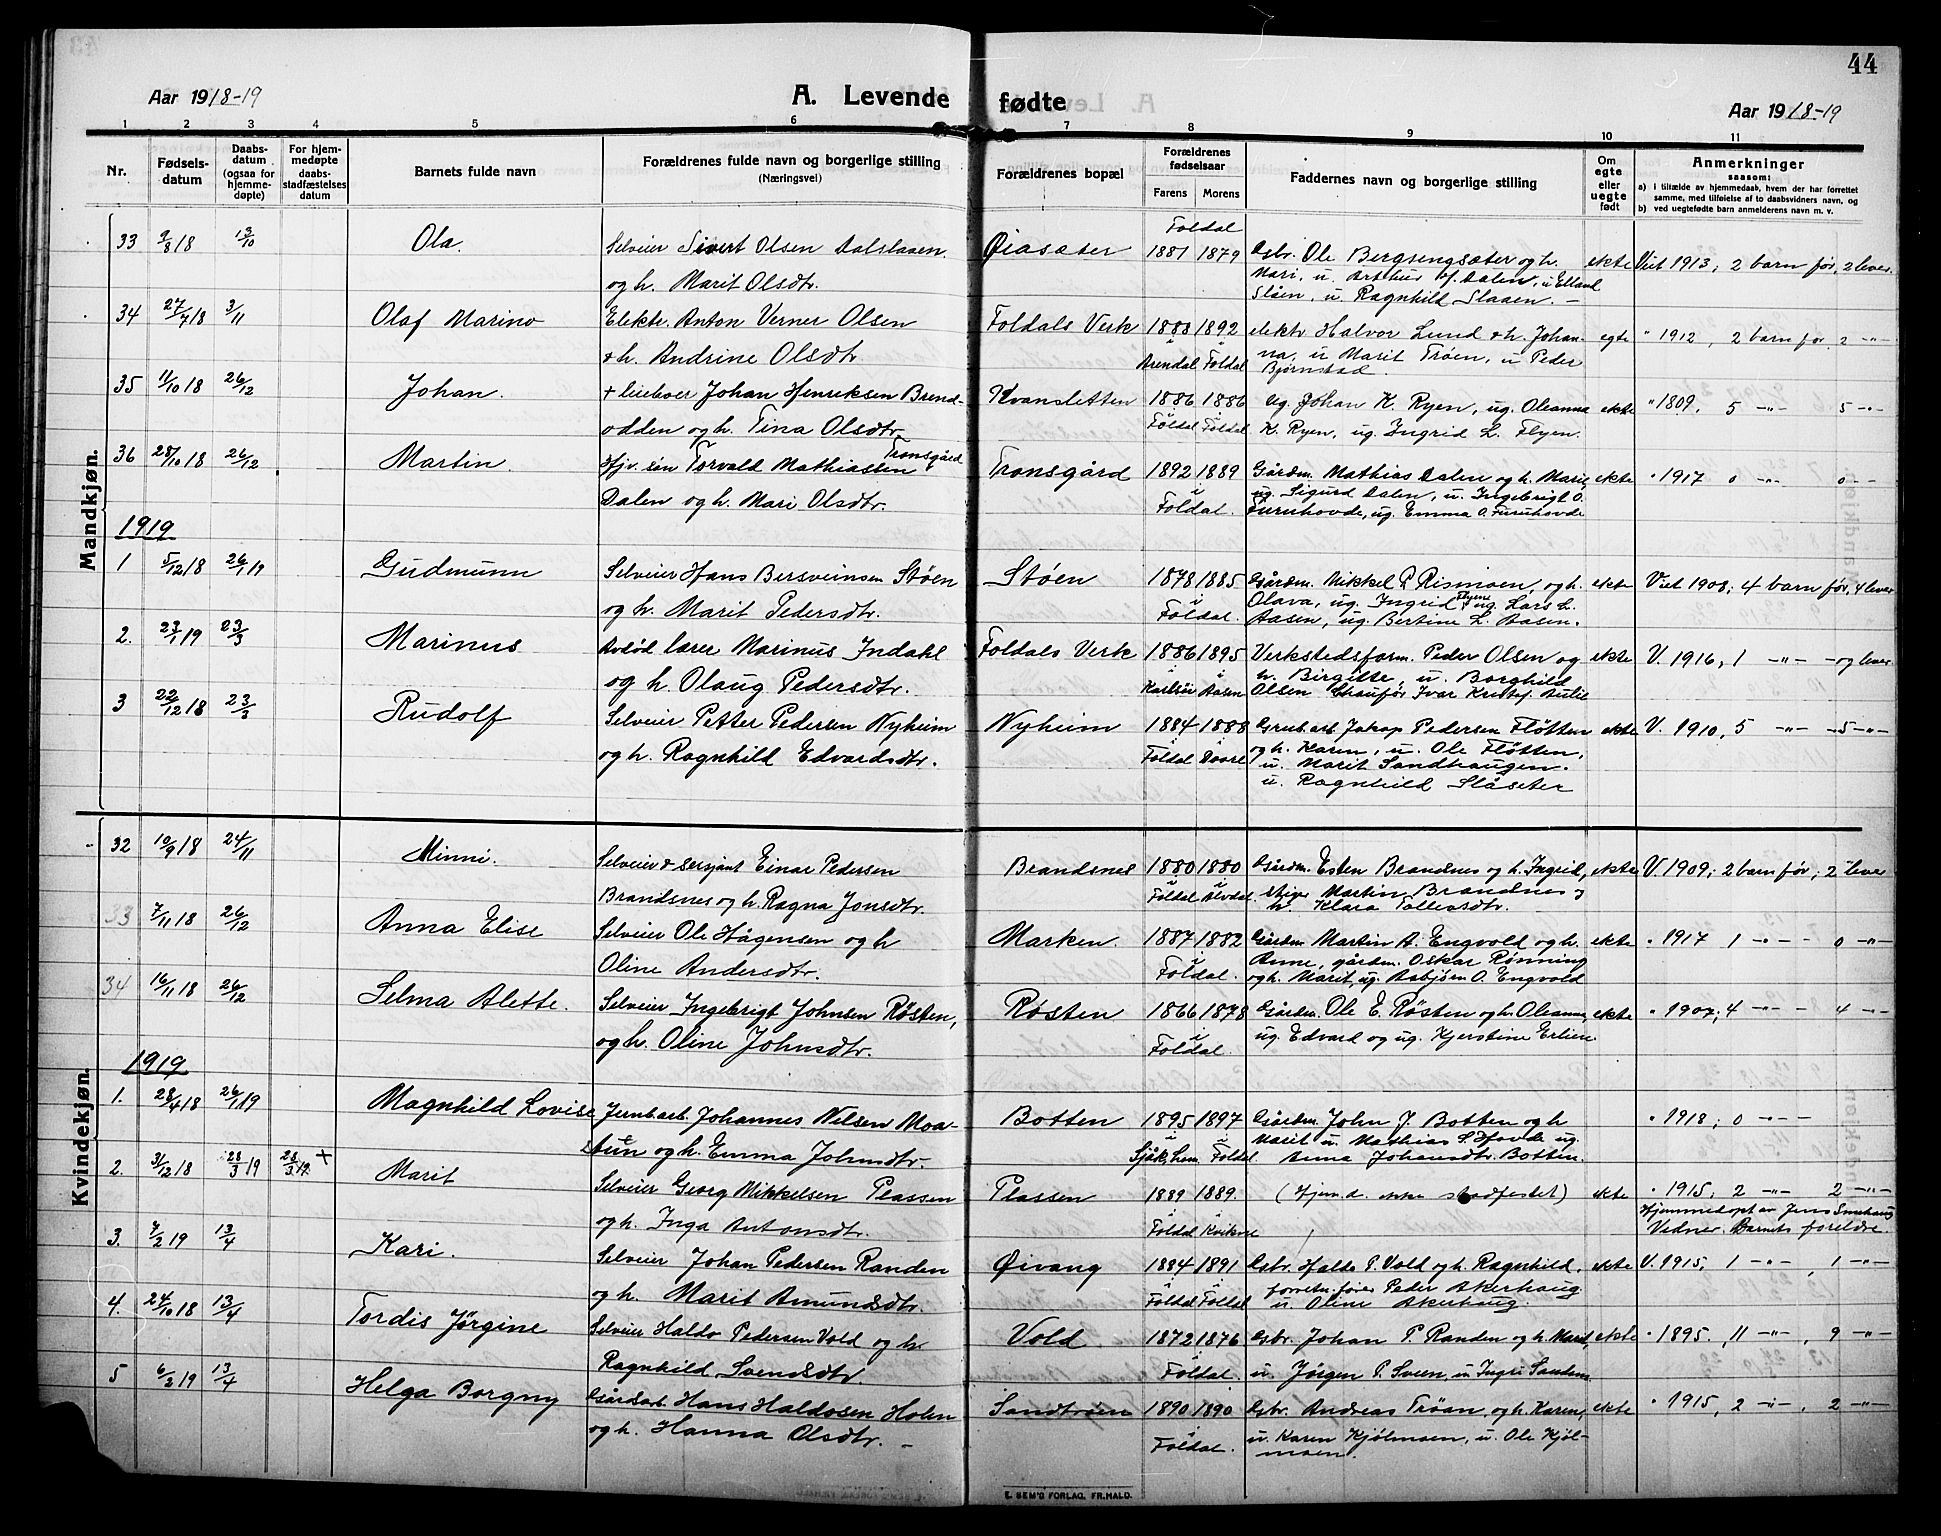 44
Aar 1918-19 A. Levende fødte Aar 1918-19
1 2 3 4 5 6 7 8 9 10 11
Nr. Fødsels-datum Daabs-datum (ogsaa for hjemme-døpte) For hjem-medøpte daabs-stadfæstelses datum Barnets fulde navn Forældrenes fulde navn og borgerlige stilling (Næringsvei) Forældrenes bopæl Forældrenes fødselsaar Farens Morens Faddernes navn og borgerlige stilling Om egte eller uegte født Anmerkninger saasom:
a) i tilfælde av hjemmedaab, hvem der har forrettet samme, med tilføielse af to daabsvidners navn, og
b) ved uegtefødte barn anmelderens navn m. v.
Mandkjøn.
33 9/8 18 13/10 Ola. Selveier Sivert Olsen Dalslaaen Øiasæter Foldal 1881 1879 Gbr. Ole Bergsengsæter og h. ekte Viet 1913; 2 barn før, 2 lever
og h. Marit Olsdtr. Mari, u. Arthur Dalen, u Elland
Slåen, u. Ragnhild Slaaen. –
34 27/7 18 3/11 Olaf Marino Elektr. Anton Verner Olsen Foldals Verk 1888 1892 elektr Halvor Lund & h. Johan- egte " 1912, 2 barn før, 2 -"-
& h. Andrine Olsdtr Arendal Foldal na, u Marit Trøen, u Peder
Bjørnstad.
35 11/10 18 26/12 Johan. + leieboer Johan Henriksen Brend- Kvansletten 1886 1886 ug. Johan K. Ryen, ug. Oleanna ekte " 1809, 5 -"- 5 -"-
odden og h. Tina Olsdtr. Foldal Foldal K. Ryen, ug. Ingrid L. Flyen.
36 28/10 18 26/12 Martin. Hjv. søn Torvald Mathiassen Tronsgård Tronsgård 1892 1889 Gårdm. Mathias Dalen og h. Marie ekte " 1917 0 -"- 0 - -
Dalen og h. Mari Olsdtr. i Foldal. ug. Sigurd Dalen, u. Ingebrigt O.
Furuhovde, ug. Emma O. Furuhovde
1919
1 5/12 18 26/1 19 Gudmunn Selveier Hans Bersveinsen Støen Støen 1878 1885 Gårdm. Mikkel P. Rismoen, og h. ekte Viet 1908; 4 barn før, 4 lever
og h. Marit Pedersdtr. i Foldal. Olava, ug. Ingrid Flyen, ug. Lars L.
Aasen, ug. Bertine L. Aasen.
2. 23/1 19 23/3 Marinus Avlød lærer Marinus Indahl Foldals Verk 1886 1895 Verkstedsform. Peder Olsen og ekte V. 1916, 1 -"- - og lever
og h. Olaug Pedersdtr. Aasen h. Birgitte, u. Borghild
Olsen Shaufør Ivar Kristof. Aulie
3 22/12 18 23/3 Rudolf Selveier Petter Pedersen Nyheim Nyheim 1884 1888 Grub.arb. Jakop Pedersen Fløtten ekte V. 1910, 5 -"- -5-"-
og h. Ragnhild Edvardsdtr. Foldal Dovre og h. Karen, u. Ole Fløtten,
u. Marit Sandhaugen.
u. Ragnhild Slåseter
Kvindekjøn.
32 10/9 18 24/11 Minni. Selveier & sersjant Einar Pedersen Brandsnes 1880 1880 Gårdm. Esten Brandnes og h. Ingrid, ekte V. 1909; 2 barn før; 2 lever
Brandsnes og h. Ragna Jonsdtr. Foldal Alvdal stiger Martin Brandnes og
h. Klara Tollevsdtr.
33 7/11 18 26/12 Anna Elise Selveier Ole Hågensen og h Marken 1887 1882 Gårdm. Martin A. Engvold og h. ekte " 1917 1 -"- - 0 -"-
Oline Andersdtr. i Foldal. Anne, gårdm. Oskar Rønning
og h. Marit, ug. Asbjøen O. Engvold
34 16/11 18 26/12 Selma Alette. Selveier Ingebrigt Johnsen Røsten, Røsten 1866 1878 Gårdm. Ole E. Røsten og h. Oleanna ekte " 1907; 4 -"- - 4 -"-
og h. Oline Johnsdtr. i Foldal. ug. Edvard og ug. Kjerstine Erlien
1919
1. 28/4 18 26/1 19 Magnhild Lovise Jernb.arb. Johannes Nilsen Moa- Botten 1895 1897 Gårdm. John J. Botten og h " 1918; 0 -"- -
stuen og h. Emma Johnsdtr. Foldal. Marit u. Mathias S. Hovde ug.
Anna Johansdtr. Botten.
2. 31/12 18 28/3 19 28/3 19. + Marit Selveier Georg Mikkelsen Plassen Plassen 1889 1889. (Hjem.d. ikke stadfestet) ekte " 1915; 2 -"- 2 -"-
og h. Inga Antonsdtr. Foldal Kvikne Hjemmedøpt av Jens Smehaug
Vidner. Barnets foreldre.
3. 7/2 19 13/4 Kari. Selveier Johan Pedersen Randen Øivang 1884 1891 Gbr. Haldo P. Vold og h. Ragnhild, ekte V. 1915, 1 -"- , 1 -"-
og h. Marit Amundsdtr. Foldal Foldal forretn.fører Peder Akerhaug
u. Oline Akerhaug.
4. 24/10 18 13/4 Tordis Jørgine Selveier Haldo Pedersen Vold og h. Vold 1872 1876 Gbr. Johan P. Randen og h. Marit, ekte " 1895. 11 -"- , 9 -"-
Ragnhild Svendsdtr i Foldal. u. Jørgen P. Sveen, u Ingri Sanden
5 6/2 19 13/4 Helga Borgny Gårdarb. Hans Haldosen Holen Sandtrøen 1890 1890 Gbr. Andreas Trøan, og h. Karen, ekte " 1915, 2 -"- , 2 -"-
og h. Hanna Olsdtr. – i Foldal. u. Karen Kjølmoen, u. Ole Kjøl-
moen.
E. SEM'S FORLAG, FR.HALD.